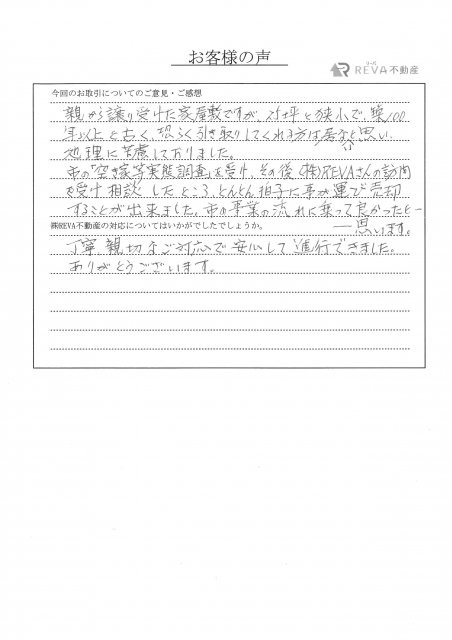 お客様の声
リーバ
REVA不動産
今回のお取引についてのご意見・ご感想
親から譲り受けた家屋敷ですが、坪と狭小で、築100
年以上と古く、恐らく引き取りしてくれる方は居ないと思い、
処理に苦慮しておりました。
市の"空き家等実態調査"を受け、その後(株)REVAさんの訪問
を受け相談したところ、とんとん拍子に事が運び売却
することが出来ました。市の事業の流れに乗って良かったと
㈱REVA不動産の対応についてはいかがでしたでしょうか。
思います。
丁寧親切なご対応で安心して進行できました。
ありがとうございます。